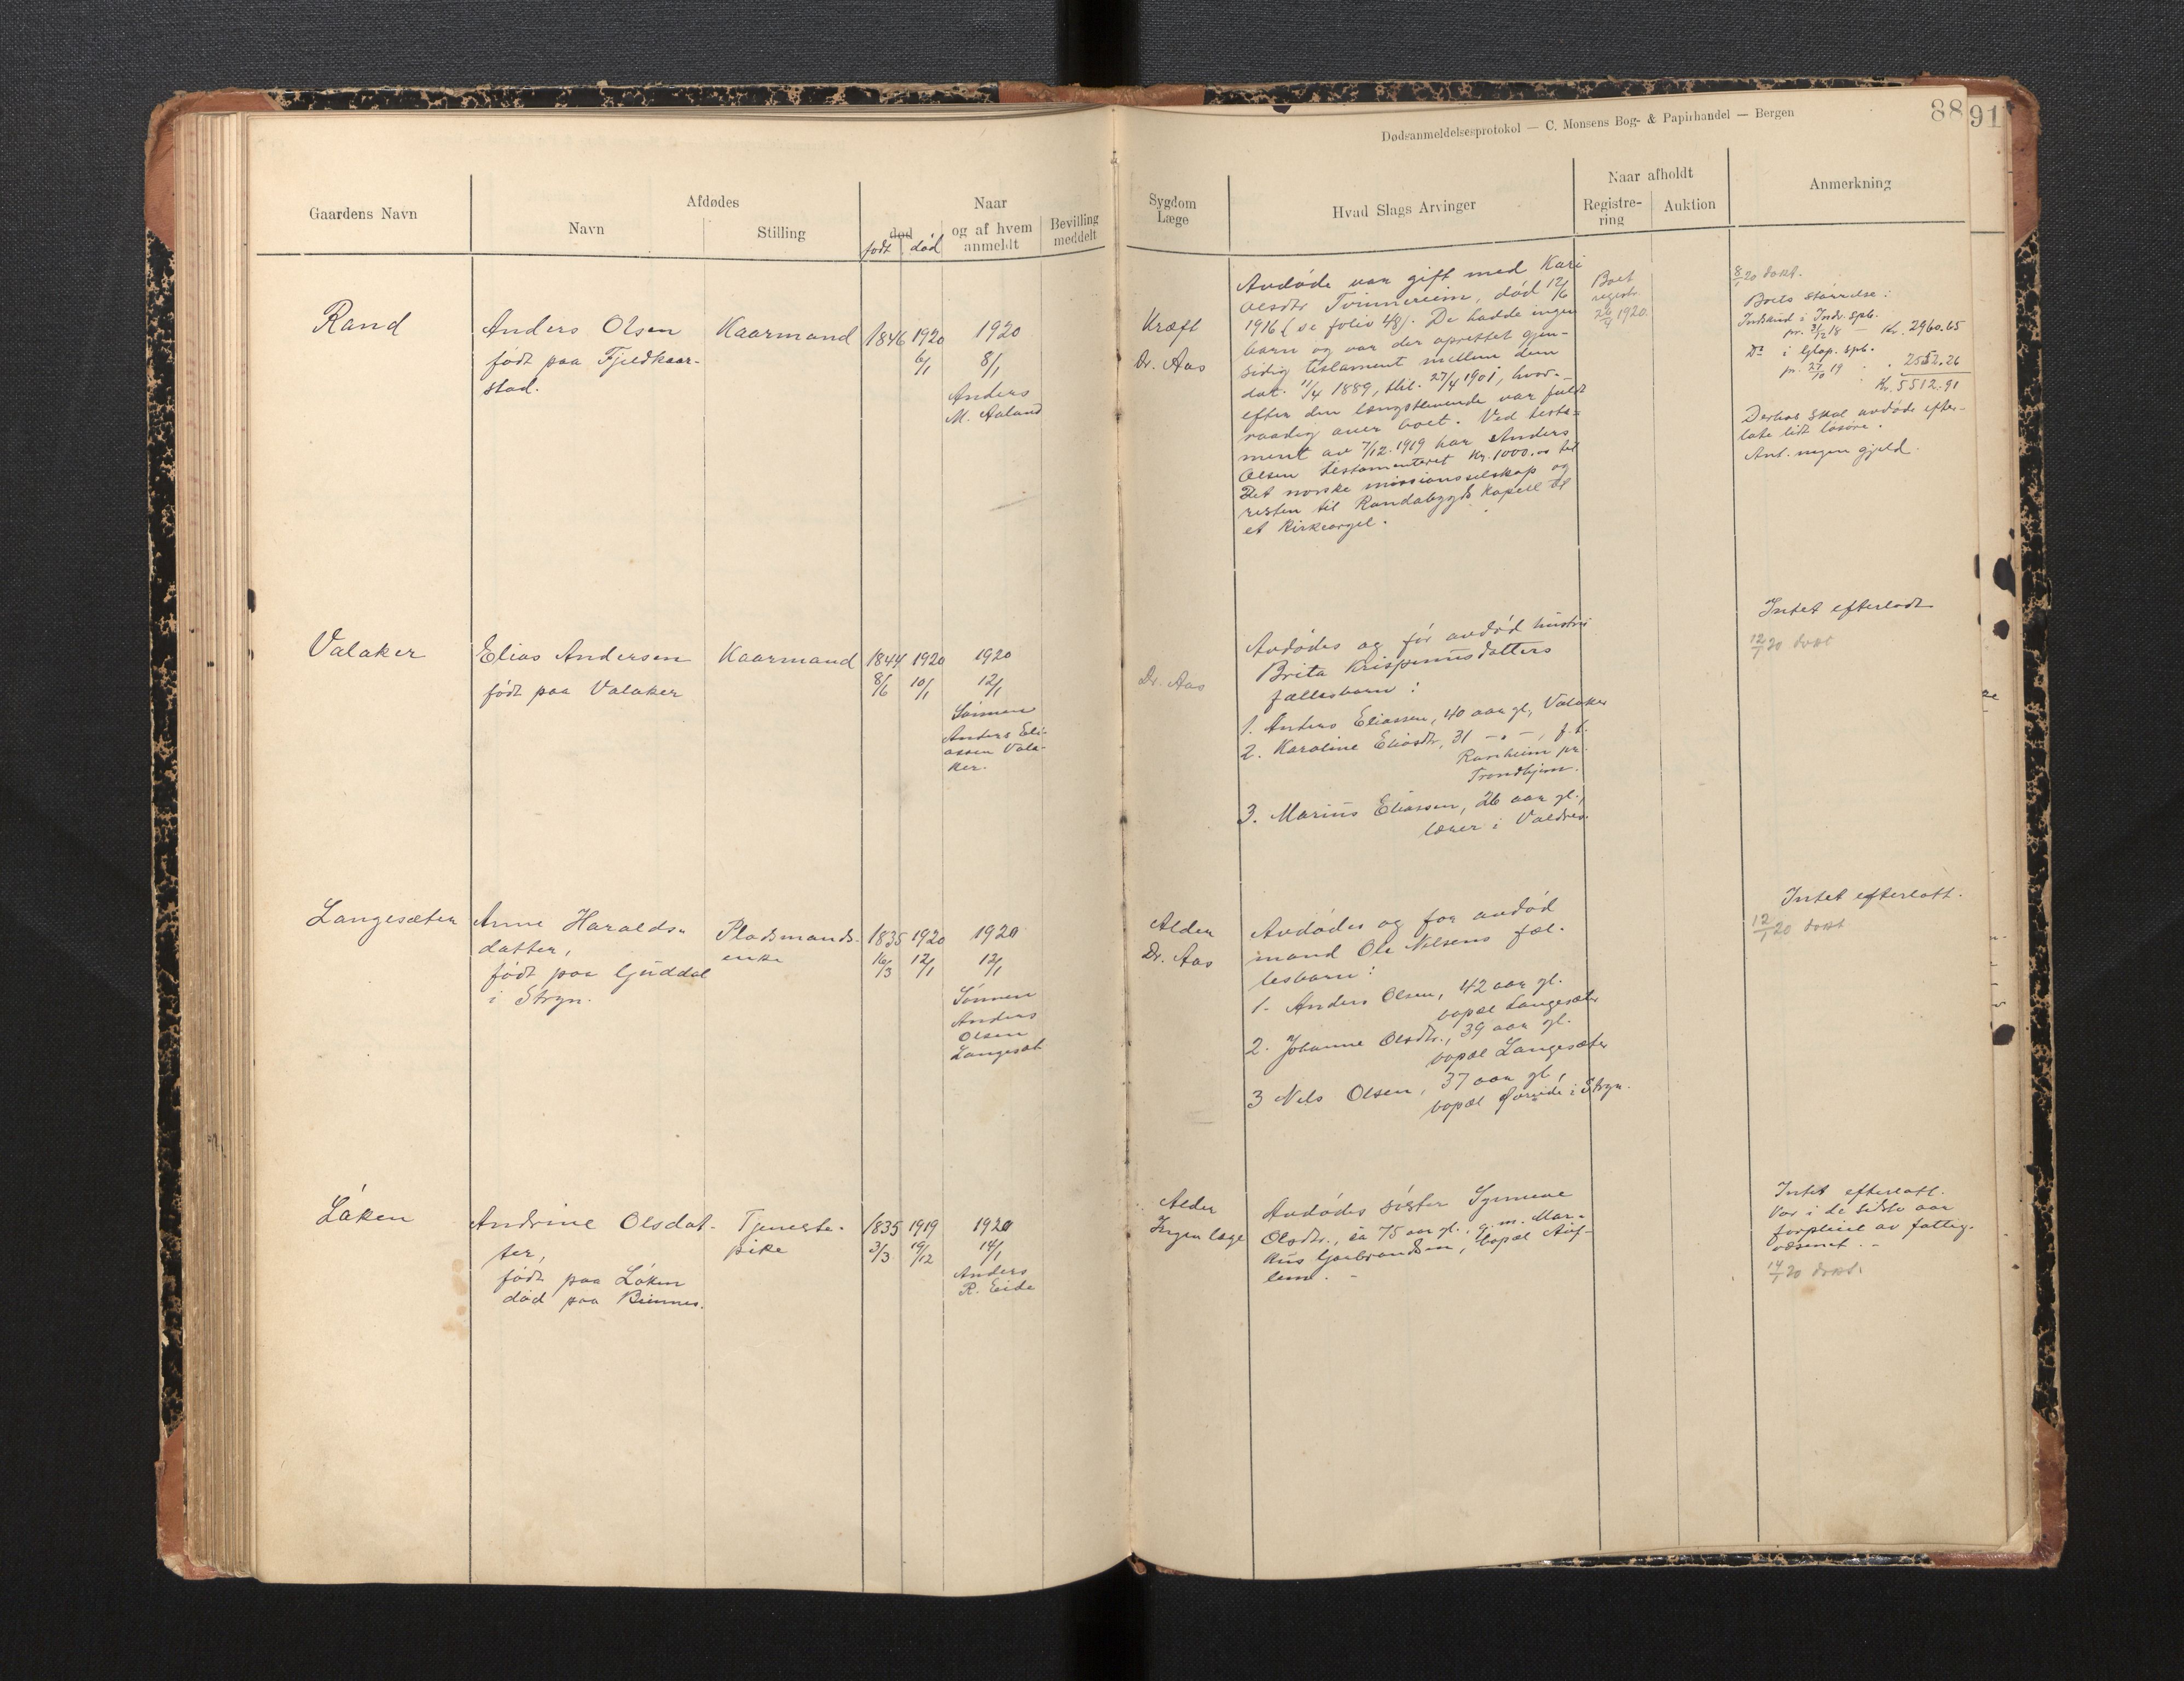 Dødsanmeldelsesprotokol — C. Monsens Bog- & Papirhandel — Bergen
88
91
Gaardens Navn
Afdødes
Navn
Stilling
Naar
død
født død
og af hvem
anmeldt
Bevilling
meddelt
Sygdom
Læge
Hvad Slags Arvinger
Naar afholdt
Registre-
ring
Auktion
Anmerkning
Rand
Anders Olsen
født paa Fjeldkaar-
stad.
Kaarmand
1846
1920
6/1
1920
8/1
Anders
M. Aaland
Kræft
Dr. Aas
Avdøde var gift med Kari
Olsdtr Tvinnereim, død 12/6
1916 (se folio 48). De hadde ingen
barn og var der oprettet gjen-
sidig testament mellem dem
dat. 11/4 1889, thl. 27/4 1901, hvor-
efter den længstlevende var fuldt
raadig over boet. Ved testa-
ment av 7/12.1919 har Anders
Olsen testamenteret kr. 1000.00 til
Det norske missionsselskap og
resten til Randabygds kapell til
et kirkeorgel.
Boet
registr.
26/7 1920.
8/1 20 dokt.
Boets størrelse:
Indskud i Indv. spb.
pr. 31/12 18 — Kr. 2960.65
Do i Glop. spb.
pr. 27/10 19 " 2552.26
Kr. 5512.91
Derhos skal avdøde efter-
late lidt løsøre.
Ant. ingen gjeld.
Valaker
Elias Andersen
født paa Valaker
Kaarmand
1844
8/6
1920
10/1
1920
12/1
Sønnen
Anders Eli-
assen Vala-
ker.
Dr. Aas
Avdødes og før avdød hustru
Brita Krispinusdatters
fællesbarn:
1. Anders Eliassen, 40 aar gl., Valaker
2. Karoline Eliasdtr, 31 — " —, f.t.
Ranheim pr.
Trondhjem.
3. Marius Eliassen, 26 aar gl.,
lærer i Valdres.
Intet efterladt
12/1 20 dokt
Langesæter
Anne Haralds-
datter,
født paa Gjuddal
i Stryn.
Pladsmands-
enke
1835
16/3
1920
12/1
1920
12/1
Sønnen
Anders
Olsen
Langesæt
Alder
Dr. Aas
Avdødes og før avdød
mand Ole Nilsens fæl-
lesbarn:
1. Anders Olsen, 42 aar gl.
bopæl Langesæter
2. Johanne Olsdtr., 39 aar gl.
bopæl Langesæter
3 Nils Olsen, 37 aar gl,
bopæl i Stryn.
Intet efterlatt.
12/1 20 dokt
Løken
Andrine Olsdat-
ter,
født paa Løken
død paa Binnes.
Tjeneste-
pike
1835
3/3
1919
19/12
1920
14/1
Anders
R. Eide
Alder
Ingen læge
Avdødes søster Synneve
Olsdtr., ca 75 aar gl., g.m. Mar-
kus Gjerbrandsen, bopæl
lem. —
Intet efterlatt.
Var i de sidste aar
forpleiet av fattig-
væsenet. —
14/1 20 dokt.